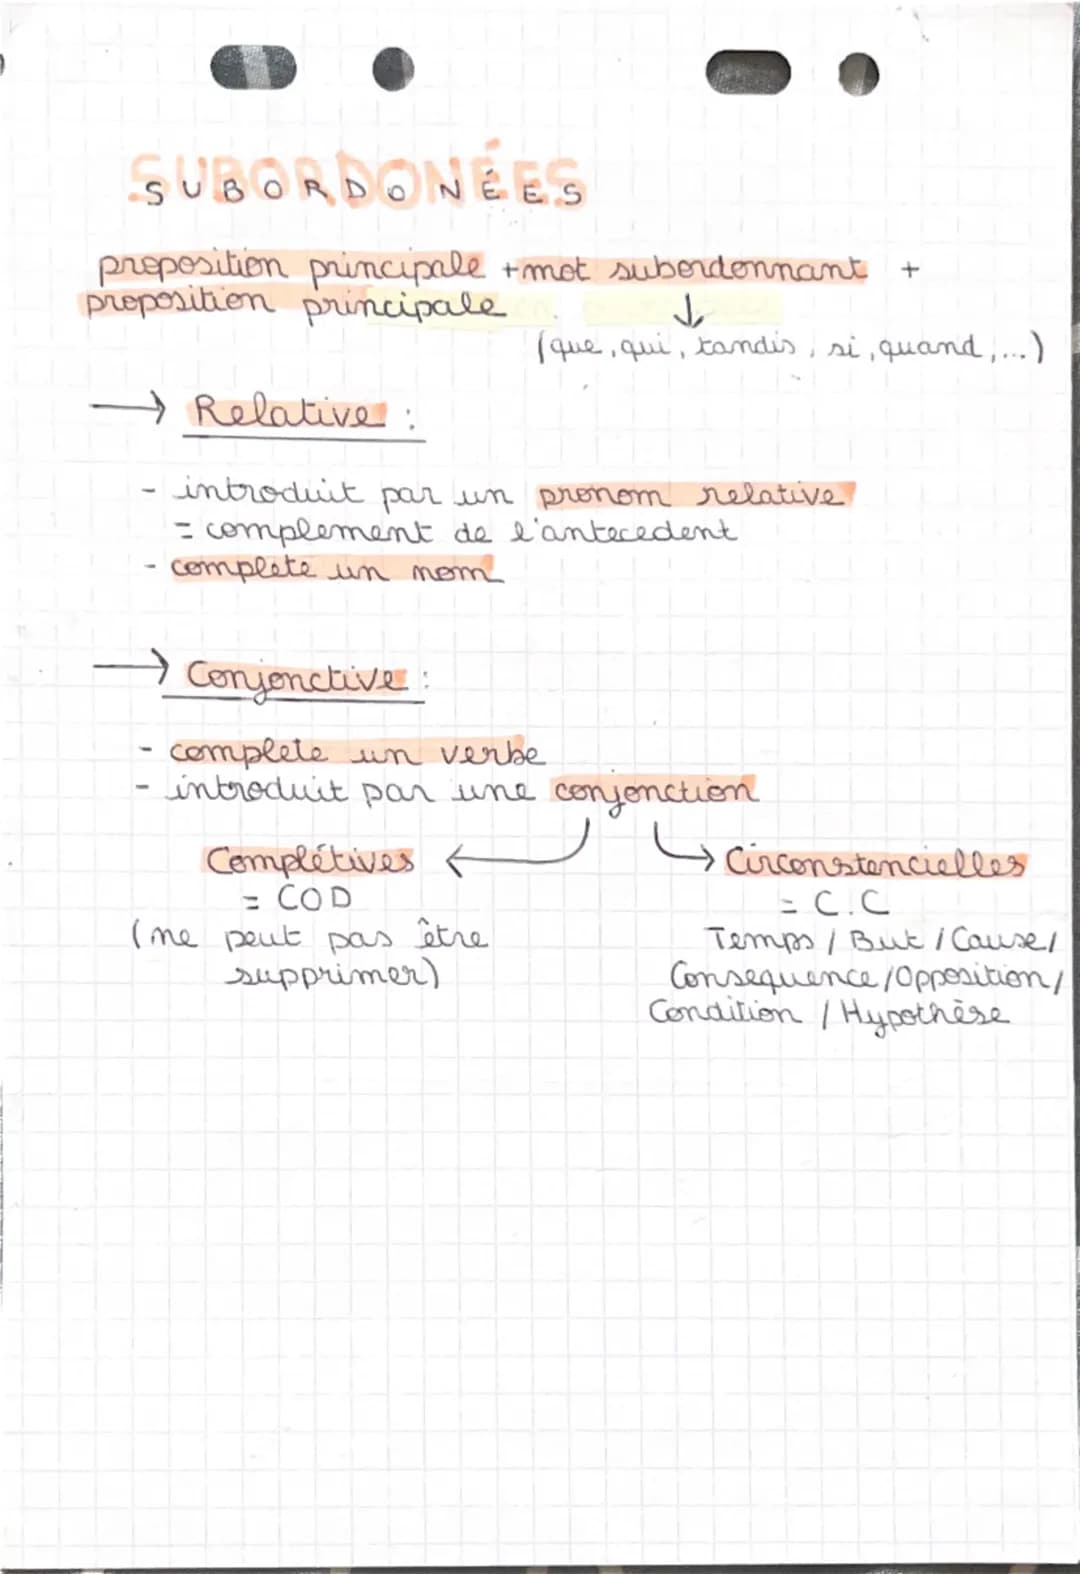 SUBORDONÉES
proposition principale + mot subordonnant +
proposition principale ↓
(que, qui, tandis, si, quand, ...)
→ Relative :
- introduit par un pronom relative
= complement de l'antecedent
- complète un nom
→ Conjonctive :
- complete un verbe
- introduit par une conjonction
Complétives ← → Circonstencielles
= COD = C.C
(ne peut pas être Temps / But / Cause /
supprimer) Consequence / Opposition /
Condition / Hypothèse